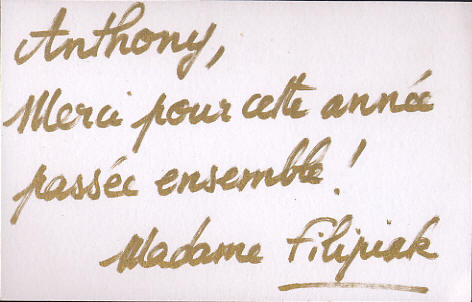 Anthony,
Merci pour cette année
passée ensemble !
Madame Filipiak